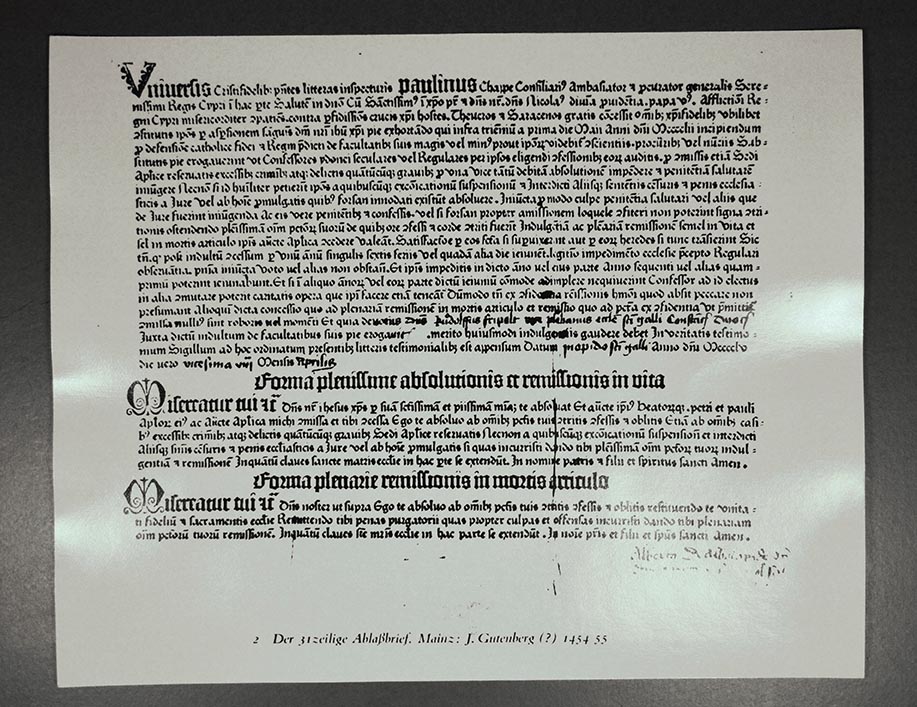 Vniuersis Cristifidelib; pñtes litteras inspecturis Paulinus Chappe Consiliari9 Ambasiator ⁊ ꝓcurator generalis Sere=
nissimi Regis Cypri ī hac ꝑte Salutē in dño Cū Sanctissim9 ī xp̄o pr̄ ⁊ dñs nr̄. dñs Nicola9 diuīa ꝓuidētia. papa v9. Afflictiōi Re=
gni Cypri misericorditer ꝯpatiēs. contra ꝑfidissimos crucis xp̄i hostes. Theucros ⁊ Saracenos gratis ꝯcessit omīb; xp̄ifidelib; vbilibet
ꝯstitutis ipōs ꝑ aspersionem sāguīs dñi nr̄i ihū xp̄i pie exhortādo qui infra trienniū a prima die Maii Anni dñi Mcccclii incipiendum
ꝓ defensiōe catholice fidei ⁊ Regni ꝑdicti de facultatib; suis magis vel min9 prout ipōrū videbit̄ ꝯscientiis. ꝓcuratorib; vel nūciis Sub=
stitutis pie erogauerint vt Confessores ydonei seculares vel Regulares per ipōs eligendi ꝯfessionib; eorū auditis. ꝓ ꝯmissis etiā Sedi
Aplice reseruatis excessib; criminib; atq; delictis quātūcūq; grauib; ꝓ vna vice tātū debitā absolutionē impēdere ⁊ penitētiā salutarē
iniūgere Necnō si id hūiliter petierīt ipōs a quibuscūq; excōicationū suspensionū ⁊ Interdicti Aliisq; sentētiis cēsuris ⁊ penis ecclesia=
sticis a Jure vel ab hoīe ꝓmulgatis quib; forsan innodati existūt absoluere. Iniūcta ꝓ modo culpe penitētia salutari vel aliis que
de Jure fuerint iniūgenda Ac eis vere penitētib; ⁊ confessis. vel si forsan propter amissionem loquele ꝯfiteri non poterint signa ꝯtri=
tionis ostendendo plēissimā oīm pctōrū suorū de quib; ore ꝯfessi ⁊ corde ꝯtriti fuerīt Indulgētiā ac plenariā remissionē semel in vita et
sel in mortis articulo ip̄is aucte Aplica ꝯcedere valeāt. Satisfactōe ꝑ eos fcā si suꝑuixerint aut ꝑ eorū heredes si tunc trāsierint Sic
tñ. q̄ post indultū ꝯcessum ꝑ vnū ānū singulis sextis feriis vel quadā alia die ieiunēt. legitīo impedimēto ecclesie p̄cepto Regulari
obseruātia. pn̄ia iniūcta voto vel alias non obstāt. Et ip̄is impeditis in dicto āno vel eius parte Anno sequenti vel alias quam=
primū poterint ieiunabunt. Et si ī aliquo ānorū vel eorū parte dictū ieiuniū cōmode adimplere nequiuerint Confessor ad id electus
in alia ꝯmutare poterit caritatis opera que ip̄i facere etiā teneāt̄ Dūmodo tñ ex ꝯfidentia remissionis hmōi quod absit peccare non
presumant Alioqui dicta concessio quo ad plenariā remissionē in mortis articulo et remissio quo ad pctā ex ꝯfidentia vt p̄mittit̄
ꝯmissa nulli9 sint roboris vel momēti Et quia deuotus dñs Rudolffus
Juxta dictū indultum de facultatibus suis pie erogauit .merito huiusmodi indulgentiis gaudere debet In veritatis testimo=
nium Sigillum ad hoc ordinatum presentib; litteris testimonialib; est appensum Datum in opido sti galli Anno dñi Mcccclv
die vero vicesima viij Mensis Aprilis
Forma plenissime absolutionis et remissionis in vita
Misereatur tui ⁊c̄ Dñs nr̄ ihesus xp̄s ꝑ suā sctissimā et piissimā mīaꝫ te absoluat Et aucte ip̄i9 Beatorūq; petri et pauli
Aplorū ei9 ac aucte Aplica michi ꝯmissa et tibi ꝯcessa Ego te absoluo ab omīb; pctis tuis ꝯtritis ꝯfessis ⁊ oblitis Etiā ab omīb; casi=
b; excessib; criminib; atq; delictis quātūcūq; grauib; Sedi Aplice reseruatis Necnon a quibuscūq; excōicationū suspensionū et interdicti
Aliisq; sentētiis cēsuris ⁊ penis ecclesiasticis a Jure vel ab hoīe ꝓmulgatis si quas incurristi dando tibi plēissimā oīm pctōrū tuorū indul=
gentiā ⁊ remissionē Inquātū claues sancte matris ecclesie in hac ꝑte se extendūt. In nomine patris ⁊ filii et spiritus sancti Amen.
Forma plenarie remissionis in mortis articulo
Misereatur tui ⁊c̄ Dñs noster vt supra Ego te absoluo ab omīb; pctis tuis ꝯtritis ꝯfessis ⁊ oblitis restituendo te vnita=
ti fideliū ⁊ sacramentis ecclesie Remittendo tibi penas purgatorii quas propter culpas et offensas incurristi dando tibi plenariam
oīm pctōrū tuorū remissionē. Inquātū claues sce mris ecclesie in hac parte se extendūt. In noīe pr̄is et filii et sp̄us sancti Amen.
2 Der 31zeilige Ablaßbrief. Mainz: J. Gutenberg (?) 1454 55